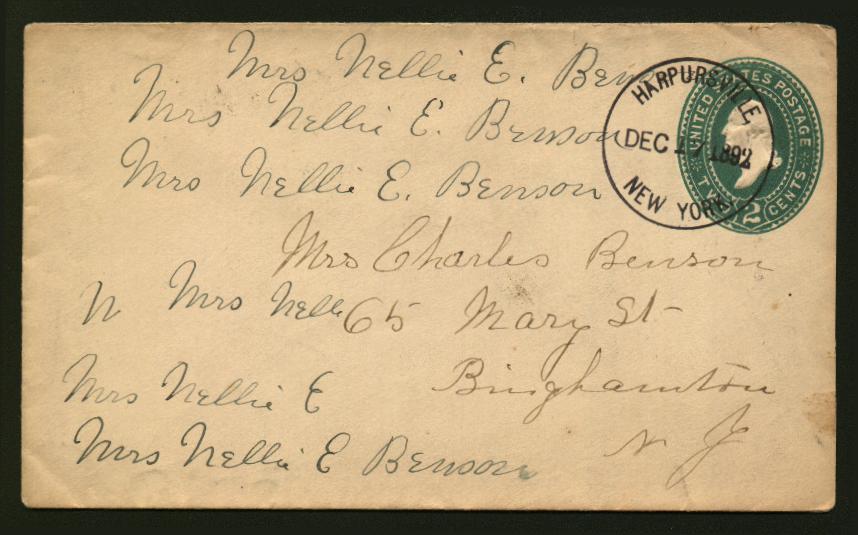 Mrs Nellie E. Ben
Mrs Nellie E. Benson
Mrs Nellie E. Benson
Mrs Charles Benson
N Mrs Nelle
65 Mary St
Binghamton
N Y
Mrs Nellie E
Mrs Nellie E Benson
HARPURSVILLE,
DEC 17 1892
NEW YORK.
UNITED STATES POSTAGE
TWO 2 CENTS